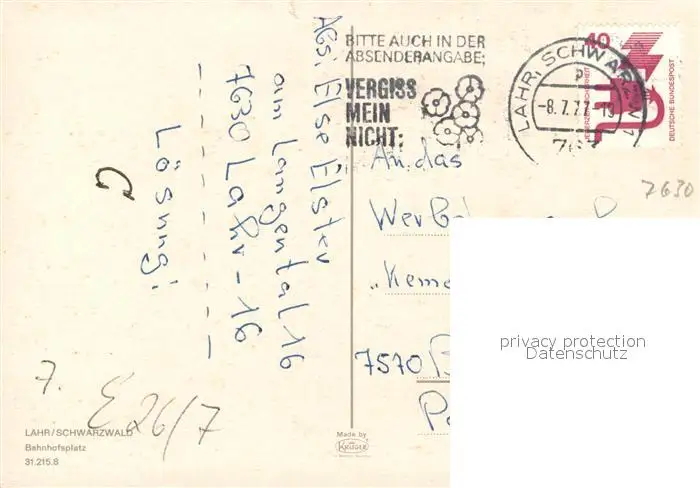 Abs: Else Elster
am Langental 16
7630 Lahr-16
Lösung:
7.
E 26/7
LAHR/SCHWARZWALD
Bahnhofsplatz
31.215.8
BITTE AUCH IN DER
ABSENDERANGABE:
VERGISS
MEIN
NICHT:
LAHR, SCHWARZW
-8.7.77-19
763
40
DEUTSCHE BUNDESPOST
7630
An das
7570
Made by
KRÜGER
privacy protection
Datenschutz